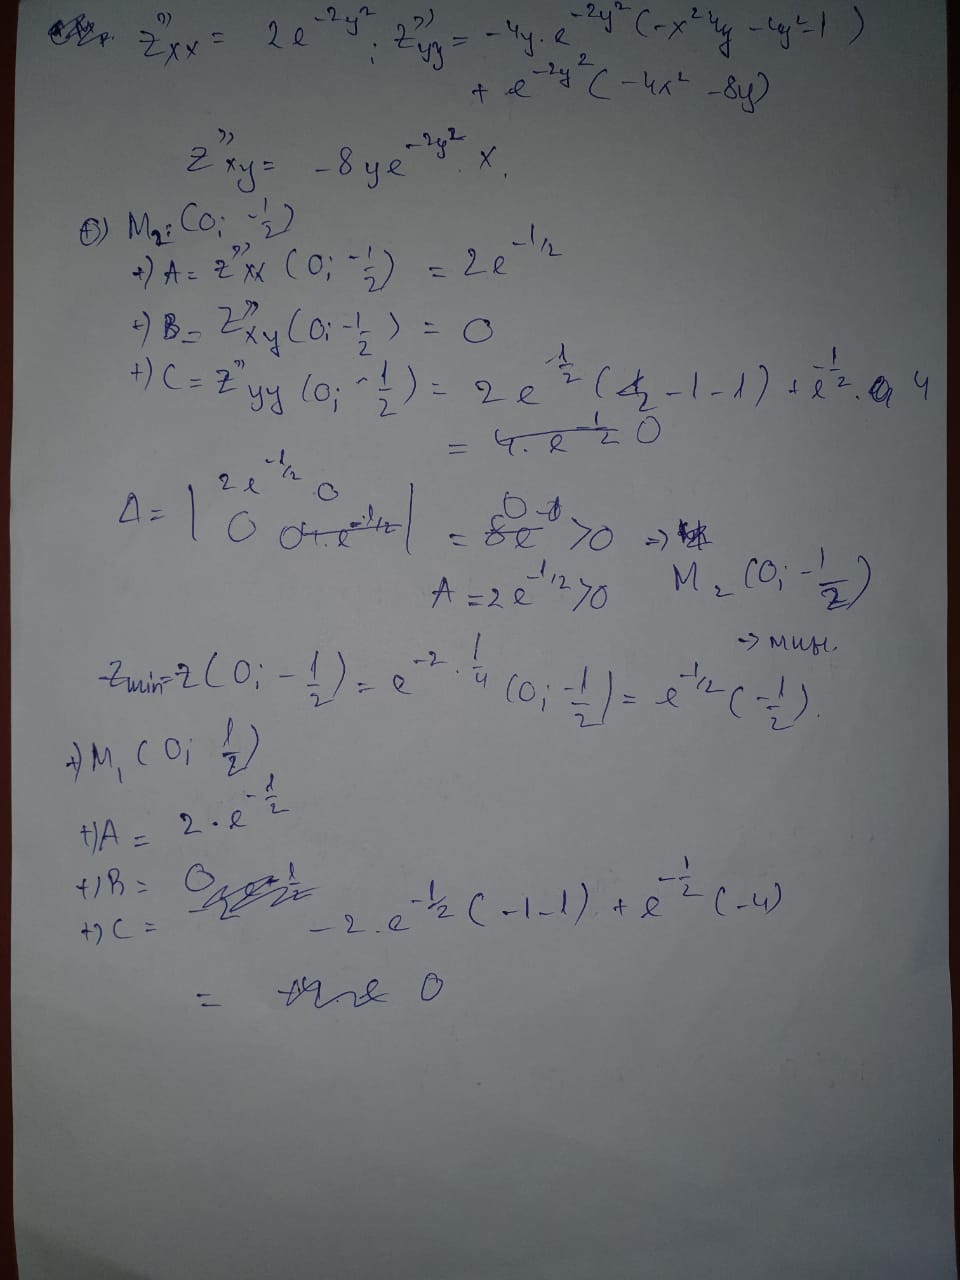 z''xx = 2e^{-2y²} ; z''yy = -4y·e^{-2y²}(-x²4y -4y²-1)
+ e^{-2y²}(-4x² -8y)
z''xy = -8ye^{-2y²}·x.
M₂: (0; -1/2)
+) A = z''xx (0; -1/2) = 2e^{-1/2}
+) B = z''xy (0; -1/2) = 0
+) C = z''yy (0; -1/2) = 2e^{-1/2}( -1-1) + e^{-1/2}. 4
= 0
Δ = | 2e^{-1/2} 0
0 0 | = 0 >0 =>
A = 2e^{-1/2} >0 M₂ (0; -1/2)
-> мин.
zmin = z(0; -1/2) = e^{-2·1/4} (0; -1/2) = e^{-1/2}(-1/2).
+) M₁ (0; 1/2)
+) A = 2·e^{-1/2}
+) B = 0
+) C = -2·e^{-1/2}(-1-1) + e^{-1/2}(-4)
= 0